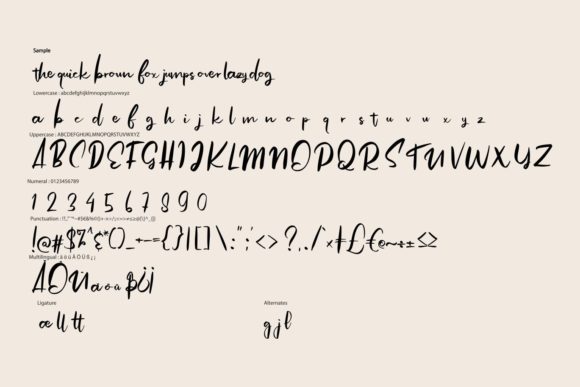 Sample
the quick brown fox jumps over lazy dog
Lowercase : abcdefghijklmnopqrstuvwxyz
a b c d e f g h i j k l m n o p q r s t u v w x y z
Uppercase : ABCDEFGHIJKLMNOPQRSTUVWXYZ
A B C D E F G H I J K L M N O P Q R S T U V W X Y Z
Numeral : 0123456789
1 2 3 4 5 6 7 8 9 0
Punctuation :
!@#$%^&*()_+-={}|[]\:";'<>?,./`×‡£€@~÷±≤≥
Multilingual : ä ö ü Ä Ö Ü ß ¿ ¡
ÄÖÜäöüß¿¡
Ligature
Alternates
æ ll tt
g j l